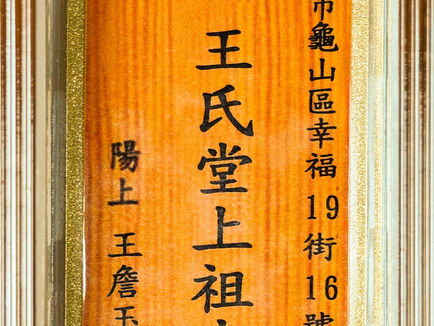 市龜山區幸福19街16號
王氏堂上祖
陽上 王詹玉